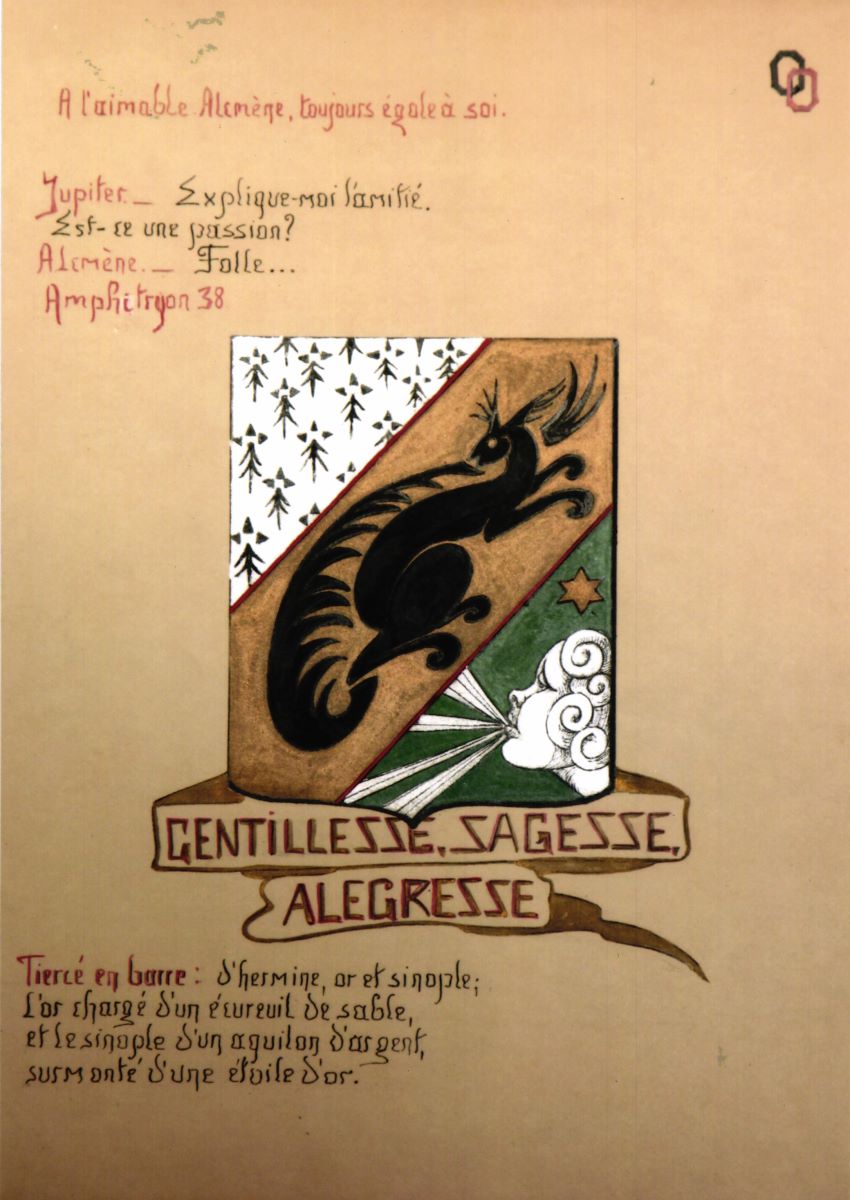 A l'aimable Alcmène, toujours égale à soi.
Jupiter._ Explique-moi l'amitié.
Est-ce une passion?
Alcmène._ Folle...
Amphitryon 38
GENTILLESSE, SAGESSE,
ALEGRESSE
Tiercé en barre: d'hermine, or et sinople;
l'or chargé d'un écureuil de sable,
et le sinople d'un aquilon d'argent,
surmonté d'une étoile d'or.